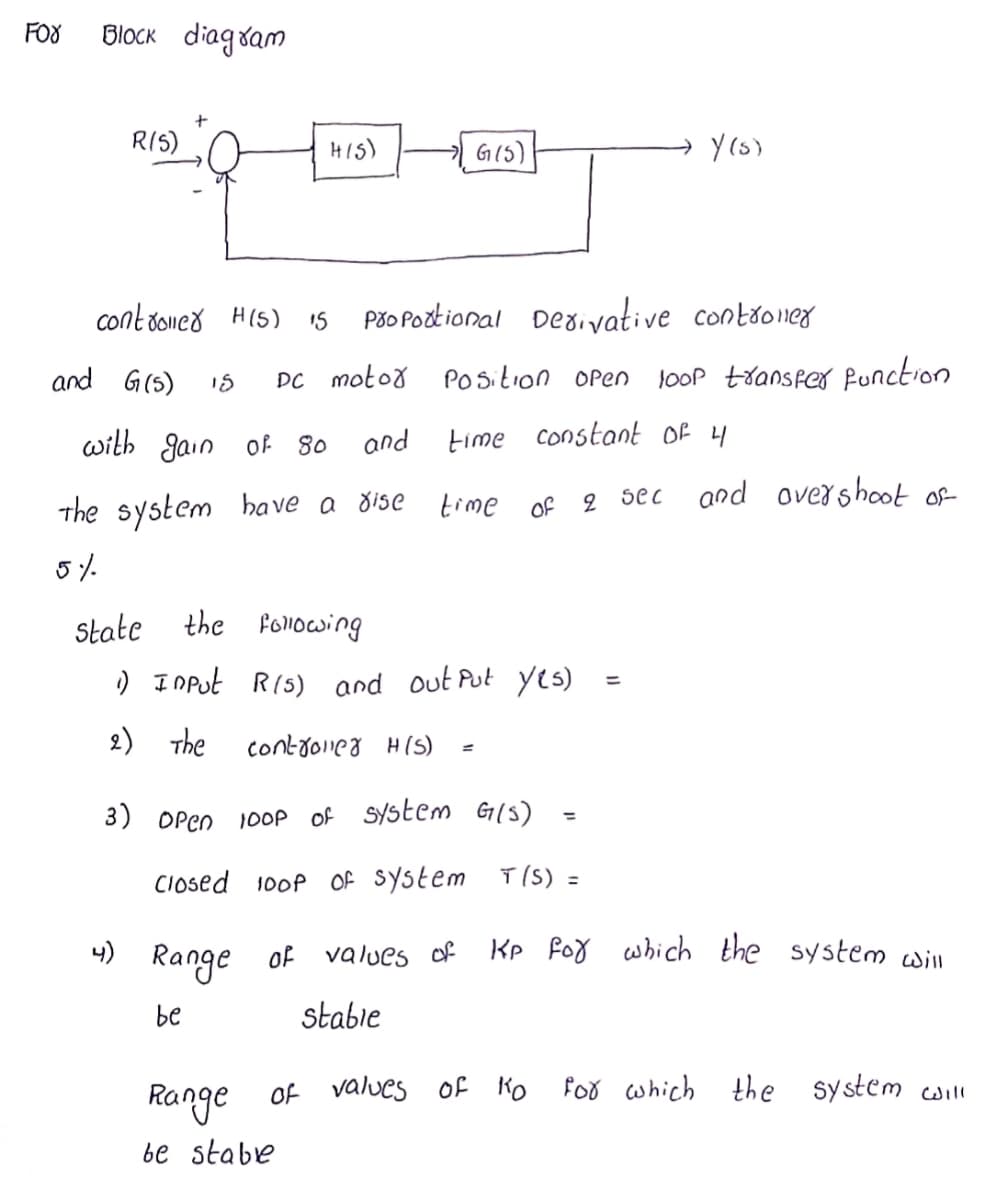 For Block diagram
+
R(S) H(S) G(S) Y(S)
-
controller H(S) is Proportional Derivative controller
and G(S) is DC motor Position open loop transfer function
with gain of 80 and time constant of 4
The system have a rise time of 2 sec and overshoot of
5%
state the following
1) Input R(S) and output Y(S) =
2) The controller H(S) =
3) open loop of system G(S) =
closed loop of system T(S) =
4) Range of values of KP for which the system will
be stable
Range of values of KD for which the system will
be stable